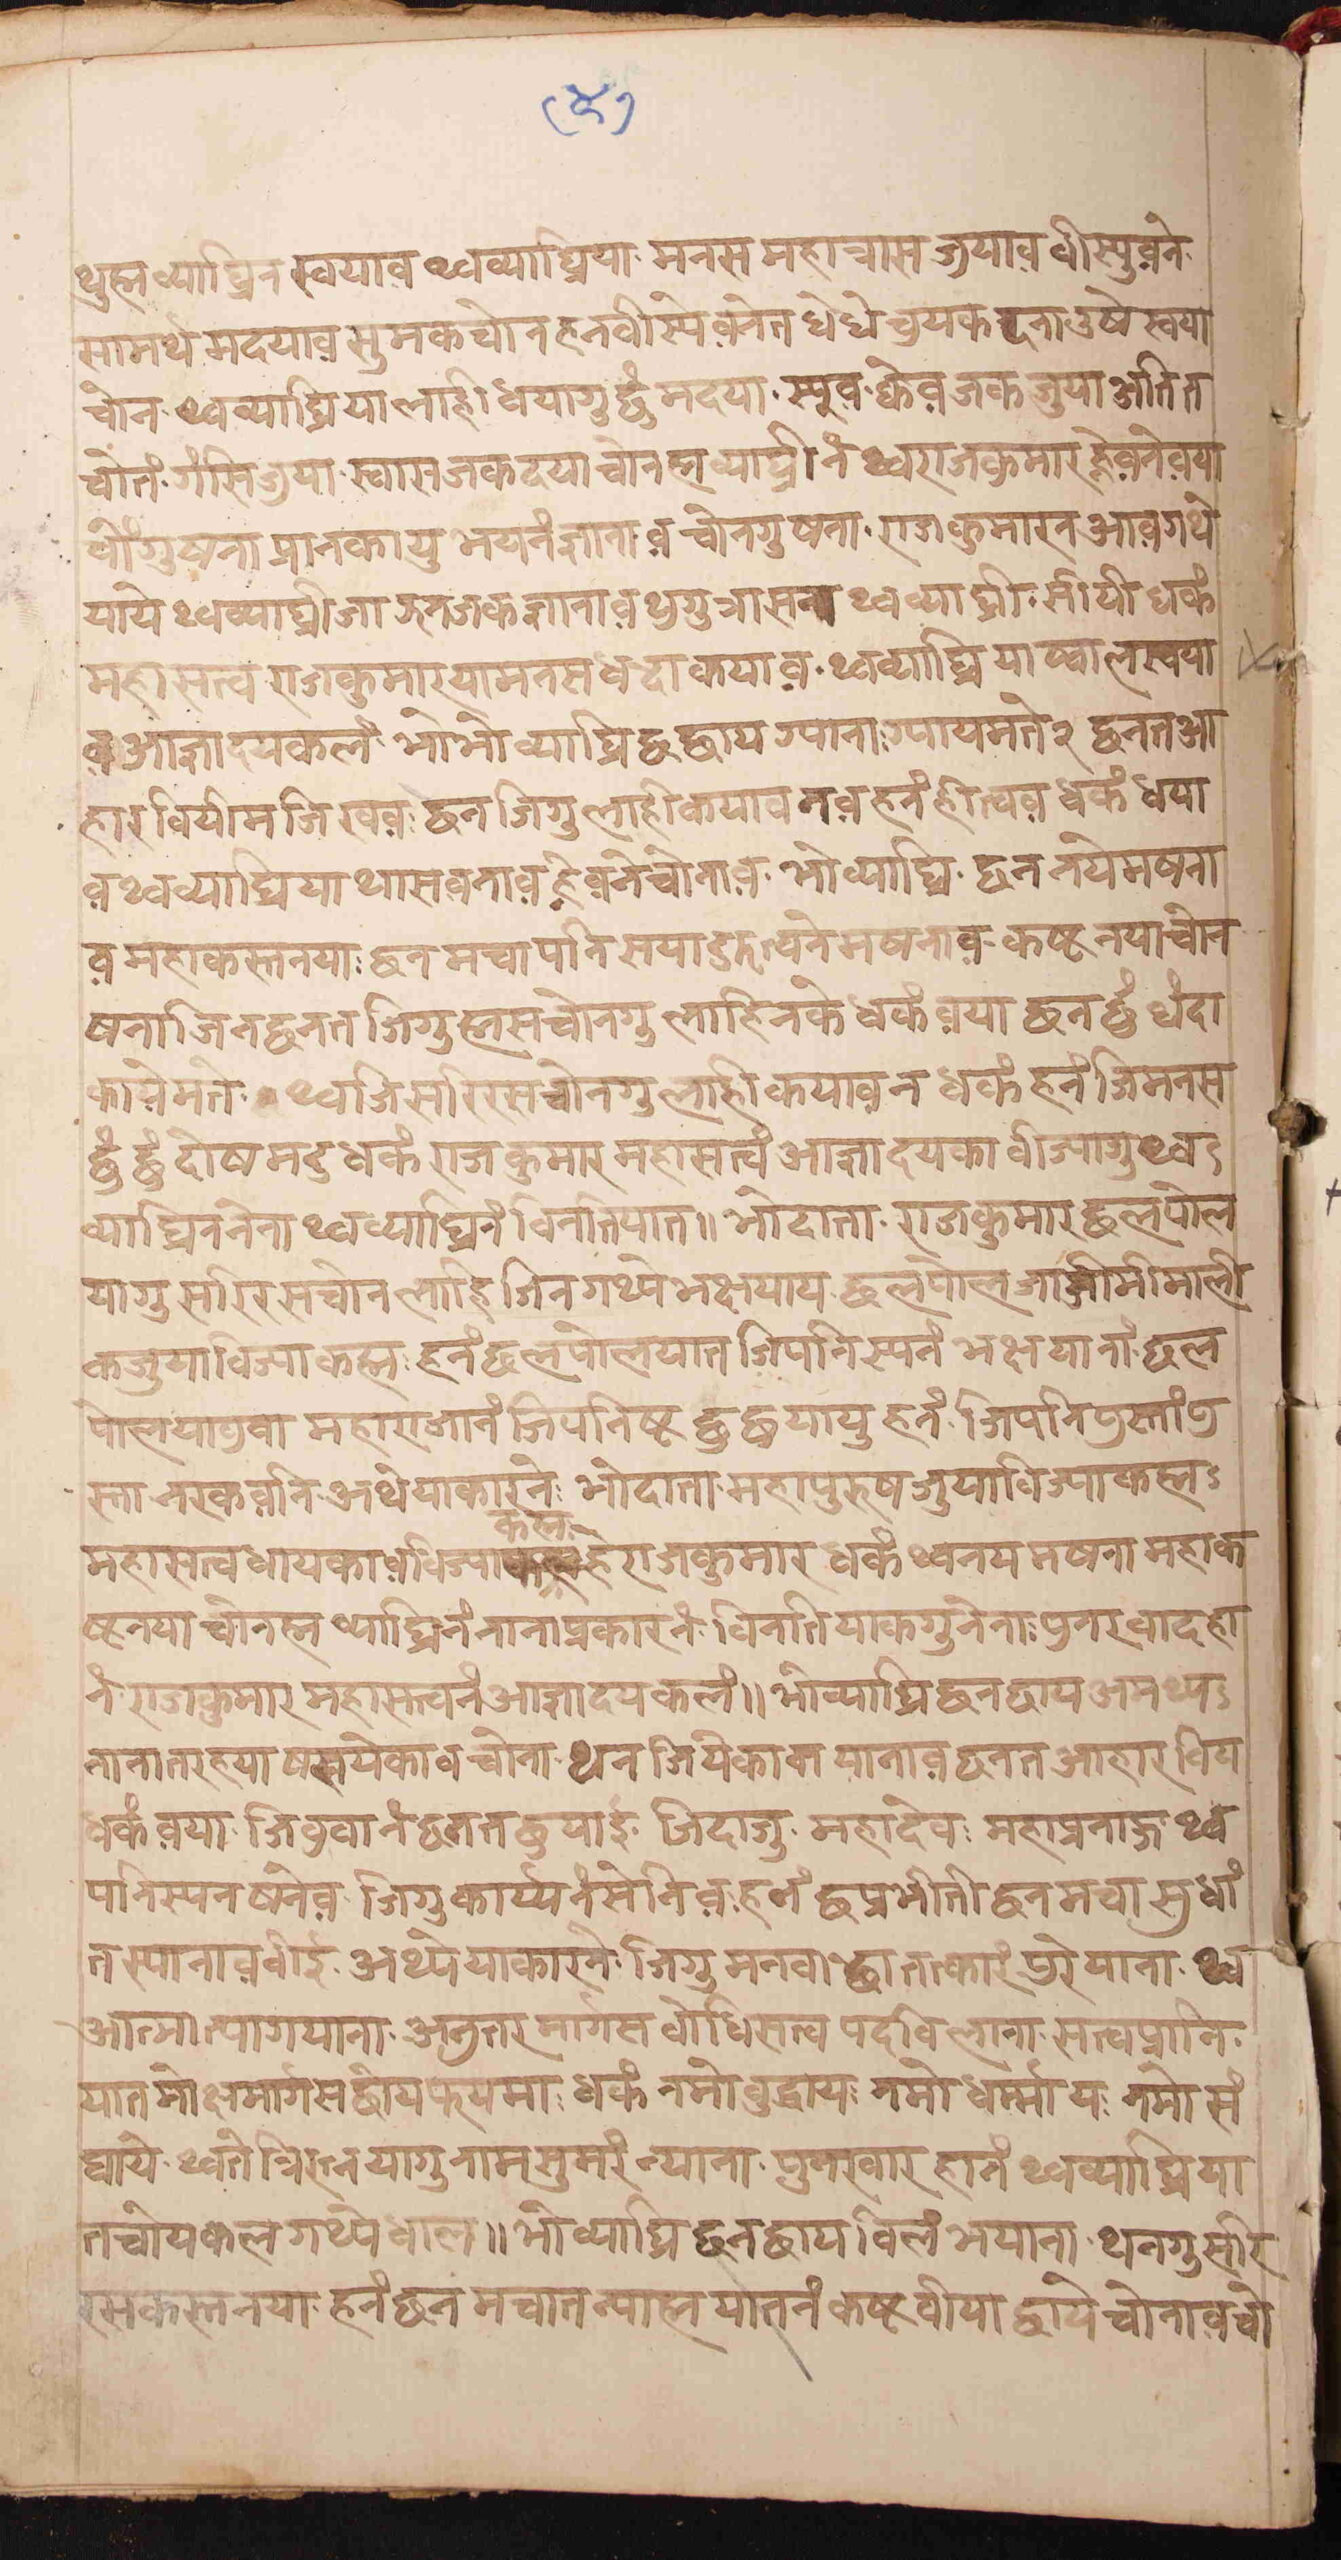 (४)
थुह्म व्याघ्रिन स्वयाव थ्वव्याघ्रिया मनस महात्रास जुयाव वीस्युवने
सामर्थ मदयाव सुमक चोन हनवीस्ये वनेत घेघे चुयक वनाउषे स्वया
चोन थ्वव्याघ्रिया लाहि धयागु छुं मदया स्युव क्वेव जक जुया अतित
चोतं गंसि जुया स्वास जक दया चोनह्म व्याघ्रीनं थ्वराजकुमार ह्नेवनेवया
चोंगु षना प्रानकायु भयनं ज्ञानाव चोनगु षना राजकुमारन आव गथे
याये थ्वव्याघ्री जा जक ज्ञानाव थुगु त्रासनं थ्वव्याघ्री सीयी धकं
महासत्व राजकुमारयामनस धंदा कयाव थ्वव्याघ्रिया ख्वाल स्वया
व आज्ञादयकलं भोभो व्याघ्रि छ छाय ग्याना ग्यायमते २ छनत आ
हार वियीम जि खव छन जिगु लाहीकयाव नव हनं ही त्वव धकं धया
व थ्वव्याघ्रिया थासवनाव ह्नेवने चोनाव भोव्याघ्रि छन नयेमषना
व महाकस्तनया छन मचापनि सया दुरु त्वने मषनाव कष्ट नयाचोन
षना जिनछनत जिगु ह्मसचोनगु लाहिनके धकं वया छन छुं धंदा
कायेमते थ्व जि सरिरसचोनगु लाही कयाव न धकं हनं जि मनस
छुं छुं दोष मदु धकं राजकुमार महासत्वं आज्ञादयका वीज्यागु थ्व
व्याघ्रिन नेना थ्वव्याघ्रिनं विनतियात॥ भोदाता राजकुमार छलपोल
यागु सरिरसचोन लाहि जिन गथ्ये भक्षयाय छलपोल जा जीमिमाली
कजुया विज्याकह्म हनं छलपोलयात जिपनिस्यनं भक्षयाना छल
पोलयावुवा महाराजानं जिपनिष्ट छु छयायु हनं जिपनि पुस्तांपु
स्ता नरकवनि अथेयाकारने भोदाता महापुरुष जुयाविज्याकह्म
कह्म
महासत्वधायकाव विज्या हेराजकुमार धकं थ्वनयमषना महाक
ष्टनया चोनह्म व्याघ्रिनं नानाप्रकारनं विनतियाकगु नेना पुनरवादहा
नं राजकुमार महासत्वनं आज्ञादयकलं॥ भोव्याघ्रि छनछाय अमथ्य
नानातरहया षल्हायेकाव चोना थन जि येकावा यानाव छनत आहारविय
धकं वया जिवुवानं छनत छुयाई जिदाजु महादेव महाप्रनाद थ्व
पनिस्यन षनेव जिगु कार्य्यनंसेनिव हनं छप्रभीती छनमचा सुधां
त स्यानाववीई अथ्येयाकारने जिगु मनवांछा ततकारं पुरेयाना थ्व
आत्मा त्यागयाना अनुतर मार्गस वोधिसत्व पदविलाना सत्वप्रानि
यात मोक्षमार्गस छोयफयमा धकं नमोवुद्धाय नमोधर्म्माय नमो सं
घाये थ्वते त्रिरत्नयागु नाम सुमरंन्याना पुनरवार हानं थ्वव्याघ्रिया
तचोयकल गथ्येधाल॥ भोव्याघ्रि छनछाय विलंभयाना थनगु सरि
रसकस्तनया हनं छन मचात न्याह्म यातनं कष्ट वीया छाये चोनावचो